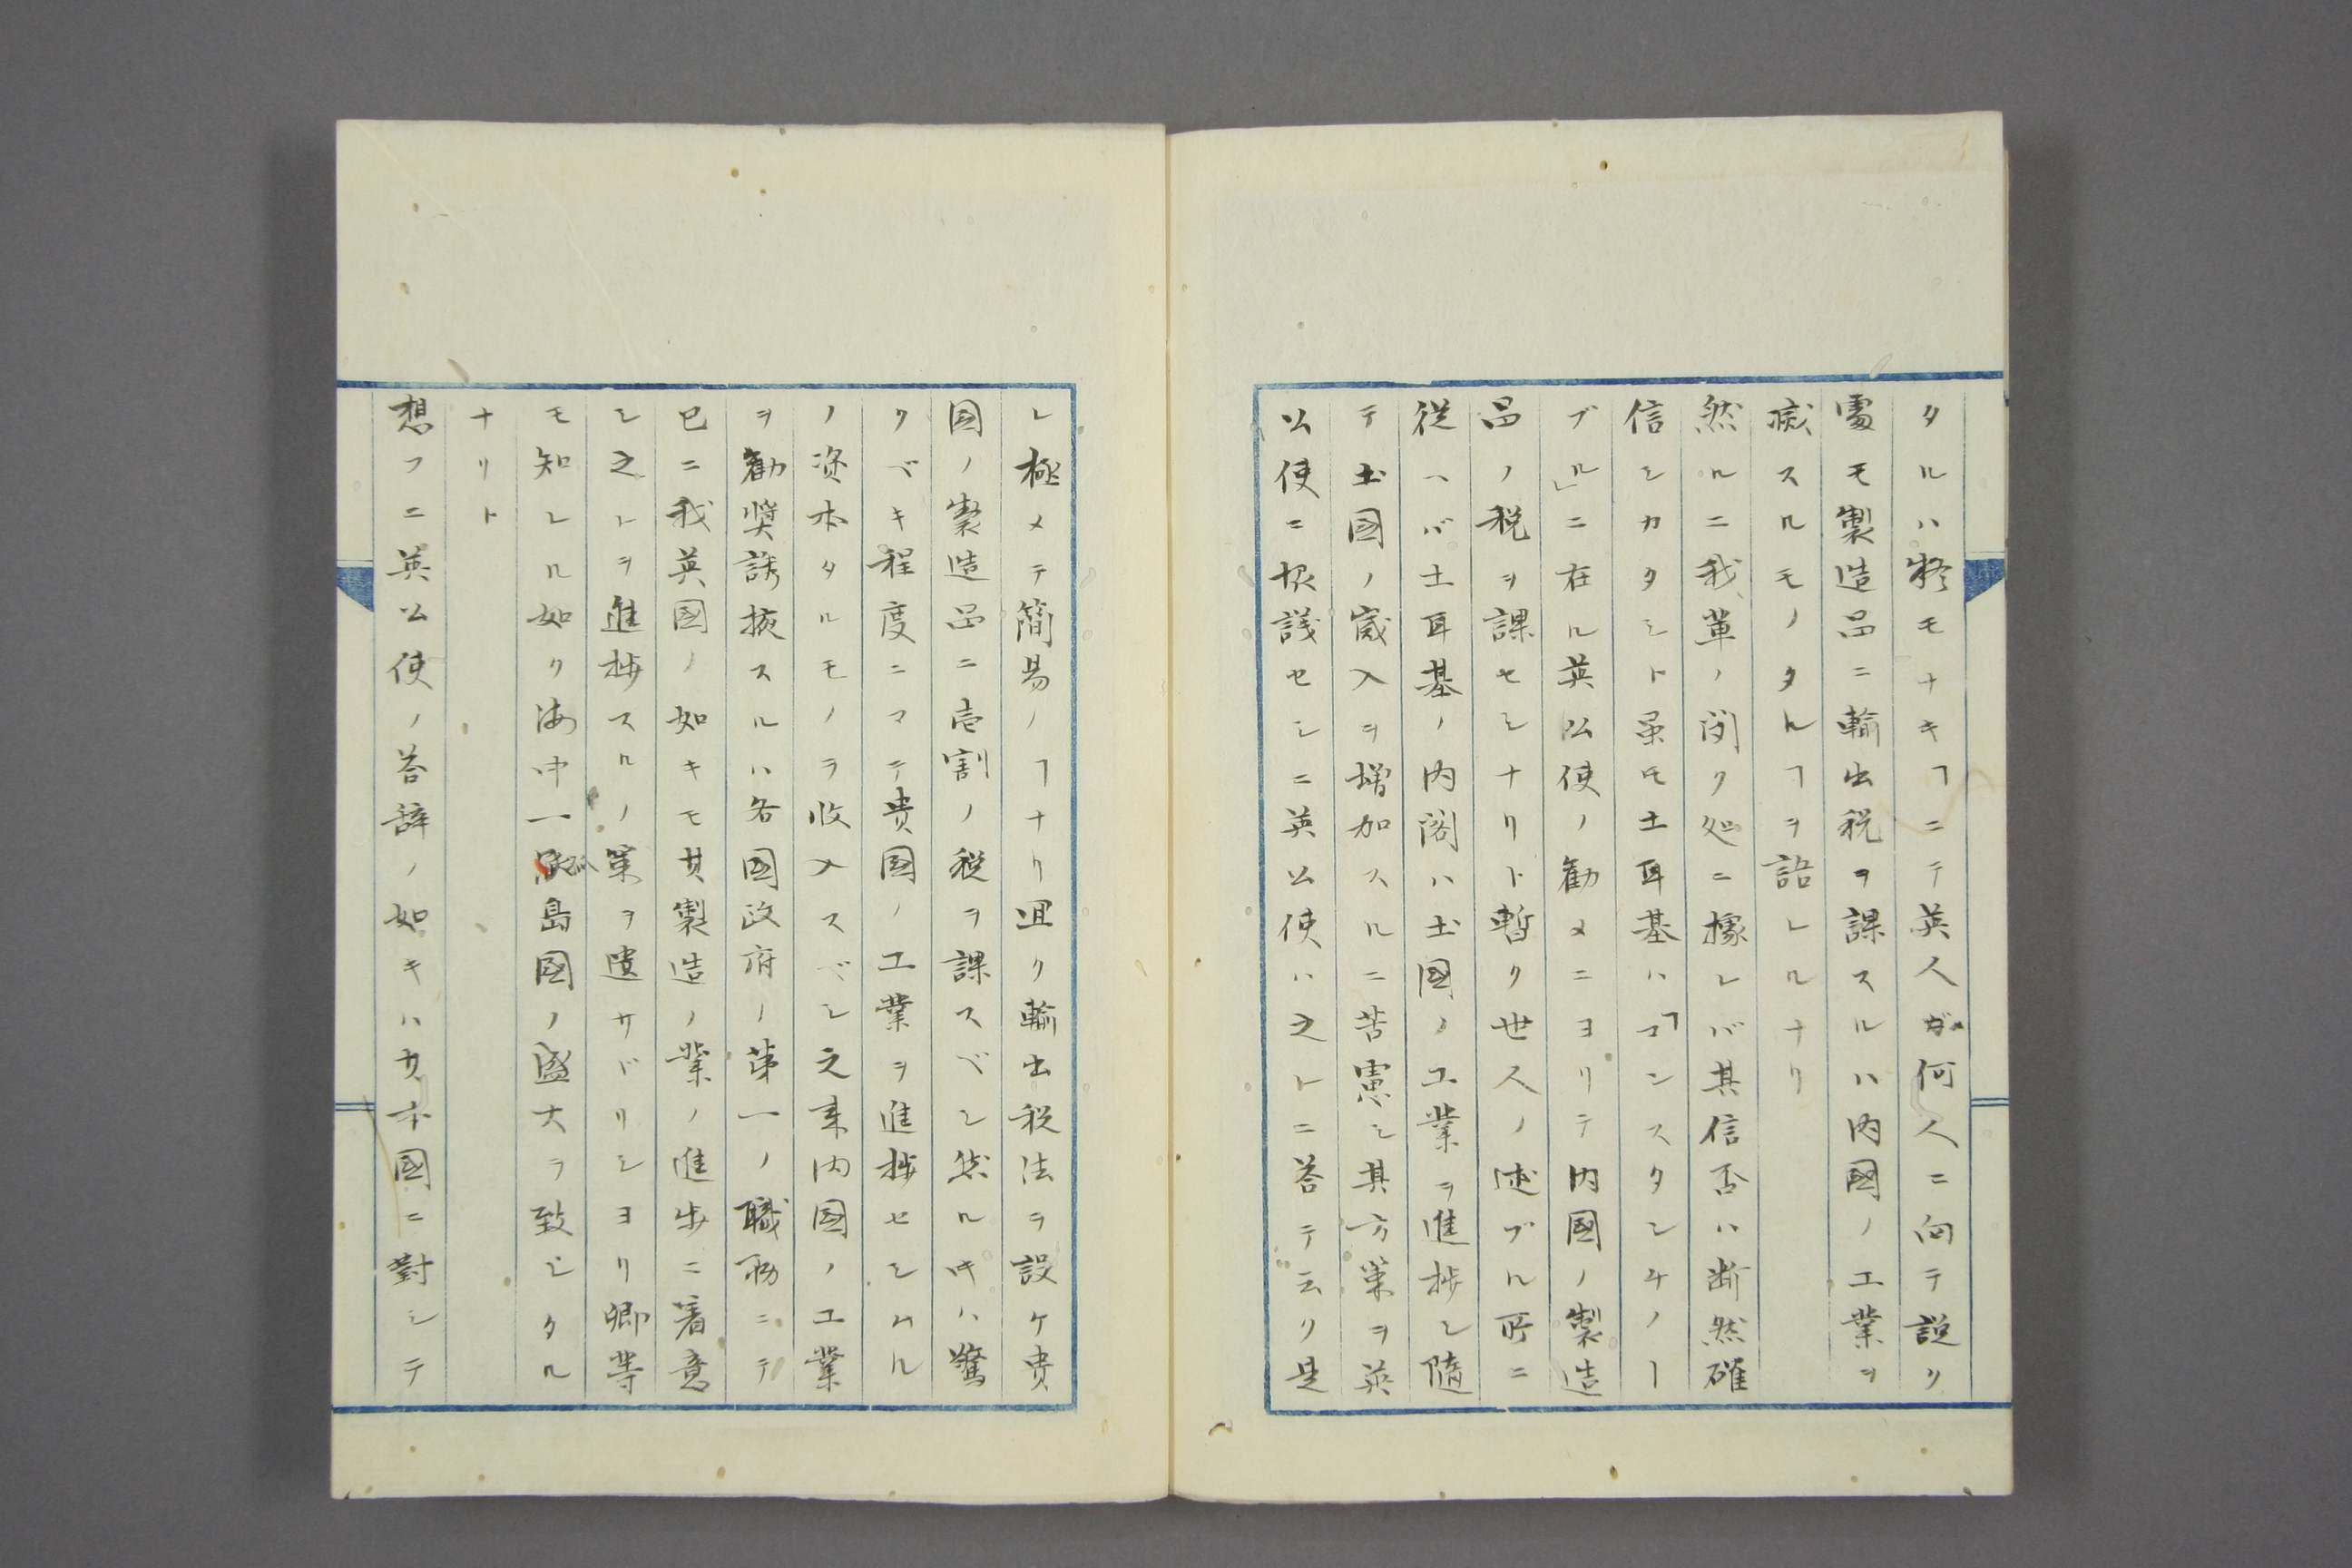 タルハ疑モナキヿニテ英人ガ何人ニ向テ説ク
処モ製造品ニ輸出税ヲ課スルハ内國ノ工業ヲ
減スルモノタルヿヲ語レルナリ
然ルニ我輩ノ聞ク処ニ據レバ其信否ハ断然確
信シカタシト虽モ土耳基ハ「コンスタンチノー
プル」ニ在ル英公使ノ勧メニヨリテ内國ノ製造
品ノ税ヲ課セシナリト暫ク世人ノ述ブル所ニ
従ヘバ土耳基ノ内閣ハ土國ノ工業ヲ進捗シ隨
テ土國ノ歳入ヲ増加スルニ苦慮シ其方策ヲ英
公使ニ協議セシニ英公使ハ之レニ答テ云ク是
レ極メテ簡易ノヿナリ宜ク輸出税法ヲ設ケ貴
國ノ製造品ニ壱割ノ税ヲ課スベシ然ル時ハ驚
クベキ程度ニマテ貴國ノ工業ヲ進捗セシムル
ノ资本タルモノヲ收入スベシ元来内國ノ工業
ヲ勧奨誘掖スルハ各國政府ノ第一ノ職務ニテ
已ニ我英國ノ如キモ其製造ノ業ノ進歩ニ著意
シ之レヲ進捗スルノ策ヲ遺サヾリシヨリ卿等
モ知レル如ク海中一孤島國ノ盛大ヲ致シタル
ナリト
想フニ英公使ノ答辞ノ如キハ其本國ニ對シテ